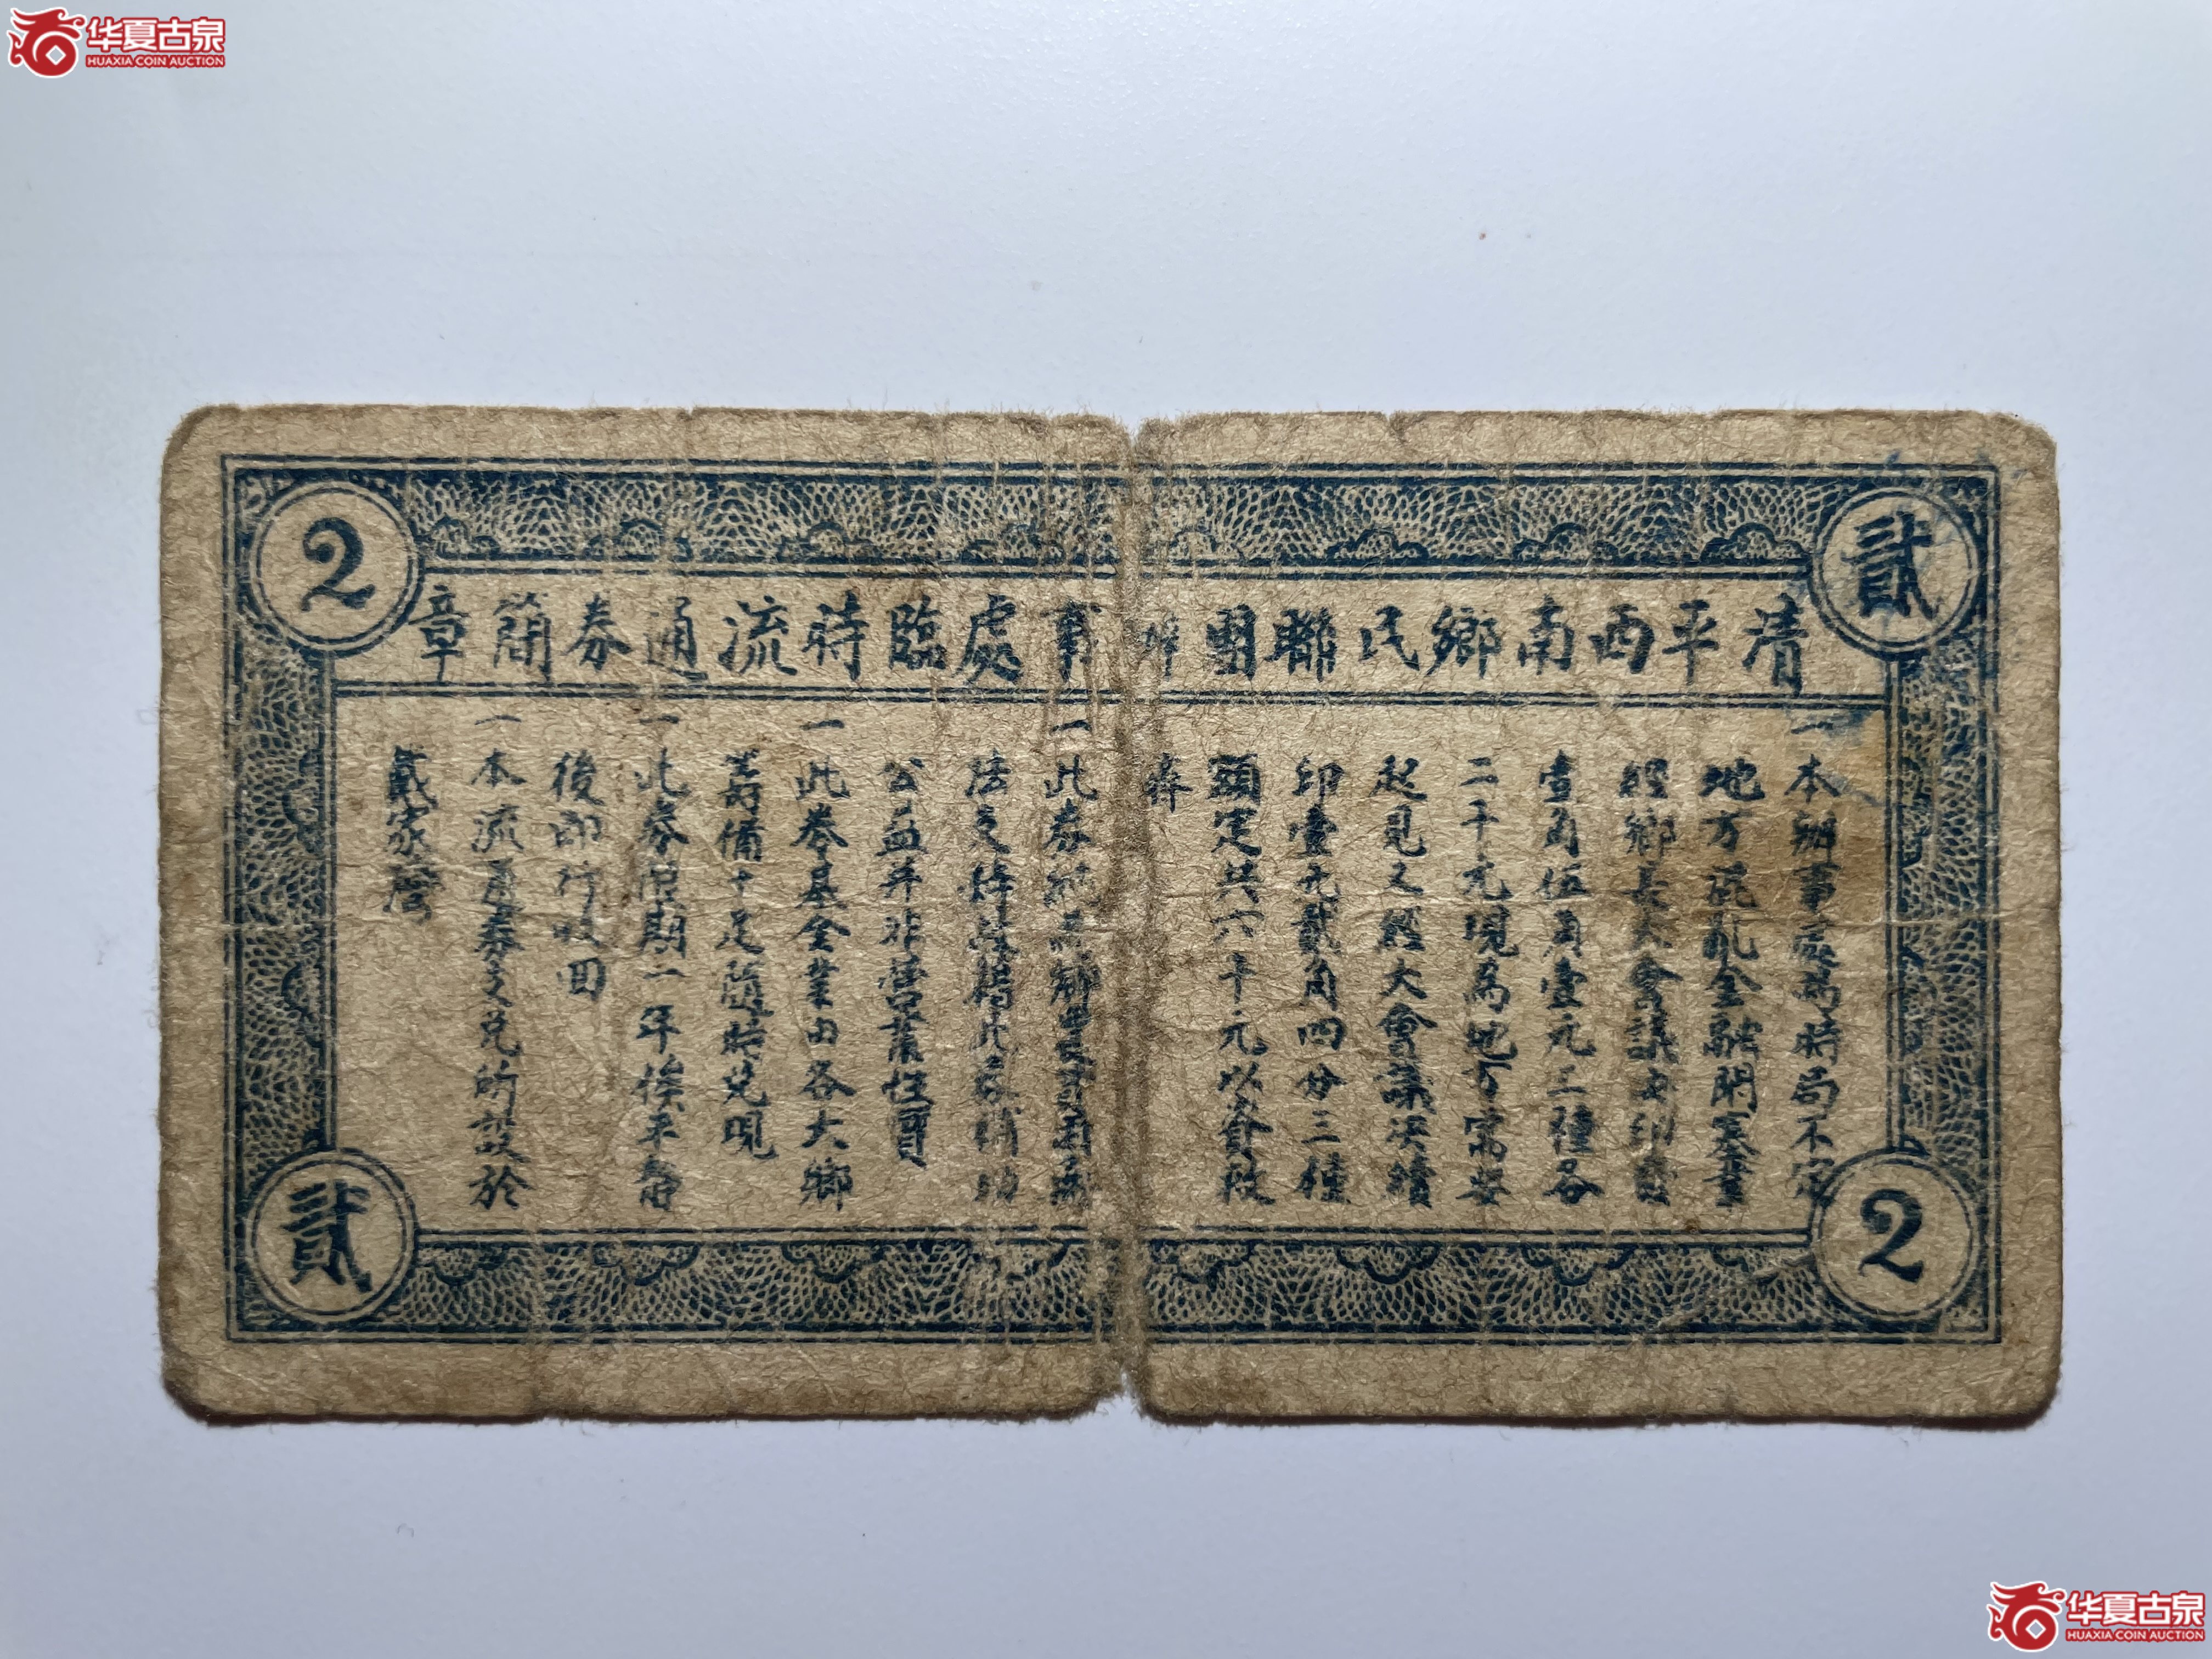 华夏古泉
HUAXIA COIN AUCTION
2
貳
清平西南鄉民聯團辦事處臨時流通券簡章
一本辦事處為時局不定
地方混亂金融閉塞
經鄉長大會議決印
壹角伍角壹元三種各
二千元現為地方需要
起見又經大會議決續
印壹元貳角四分三種
額定共六千元以資
一此券
公益并非營業性質
一此券基金業由各大鄉
籌備十足隨時兌現
一此券限期一年俟平靜
後即行收回
一本流通券支兌所設於
戴家灣
貳
2
华夏古泉
HUAXIA COIN AUCTION